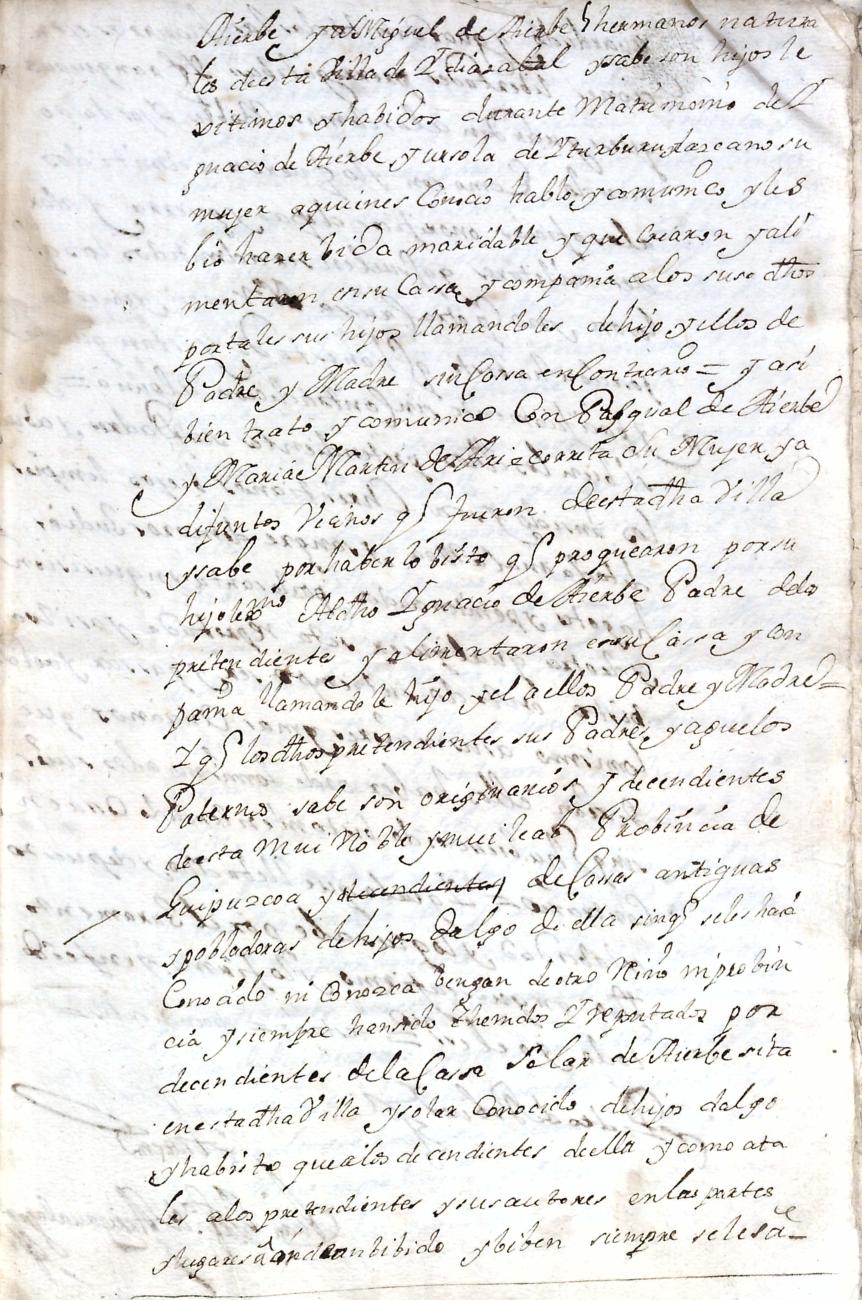 Aierbe y a Miguel de Aierbe hermanos natura
les de esta Villa de Ydiazabal y sabe son hijos le
xitimos y habidos durante Matrimonio de Y
gnacio de Aierbe y ursola de Yturburu Lazcano su
mujer a quines Conocio hablo y comunico y les
bio hazer bida maridable y que Criaron y ali
mentaron en su Cassa y compañia a los suso dhos
por tales sus hijos llamandoles de hijo y ellos de
Padre y Madre sin Cossa en Contrario = y asi
bien trato y comunico Con Pasqual de Aierbe
y Maria Martin de Arizcorreta Su Mujer ya
difuntos Vecinos q fueron de esta dha Villa
y sabe por haberlo bisto q procrearon por su
hijo lexmo Al dho Ygnacio de Aierbe Padre de los
pretendientes y alimentaron en su Cassa y con
pañia llamandole hijo y el a ellos Padre y Madre =
Y q los dhos pretendientes sus Padres y aguelos
Paternos sabe son originarios y decendientes
de esta mui Noble y mui leal Probincia de
Guipuzcoa y decendientes de Cassas antiguas
y pobladoras de hijos dalgo de ella sin q se les haia
Conocido ni Conozca bengan de otro Reino ni probin
cia y siempre han sido thenidos Y reputados por
decendientes de la Cassa Solar de Aierbe sita
en esta dha Villa y solar Conocido de hijos dalgo
y ha bisto que a los decendientes de ella y como a ta
les a los pretendientes y sus autores en las partes
y lugares donde an bibido y biben siempre se les a